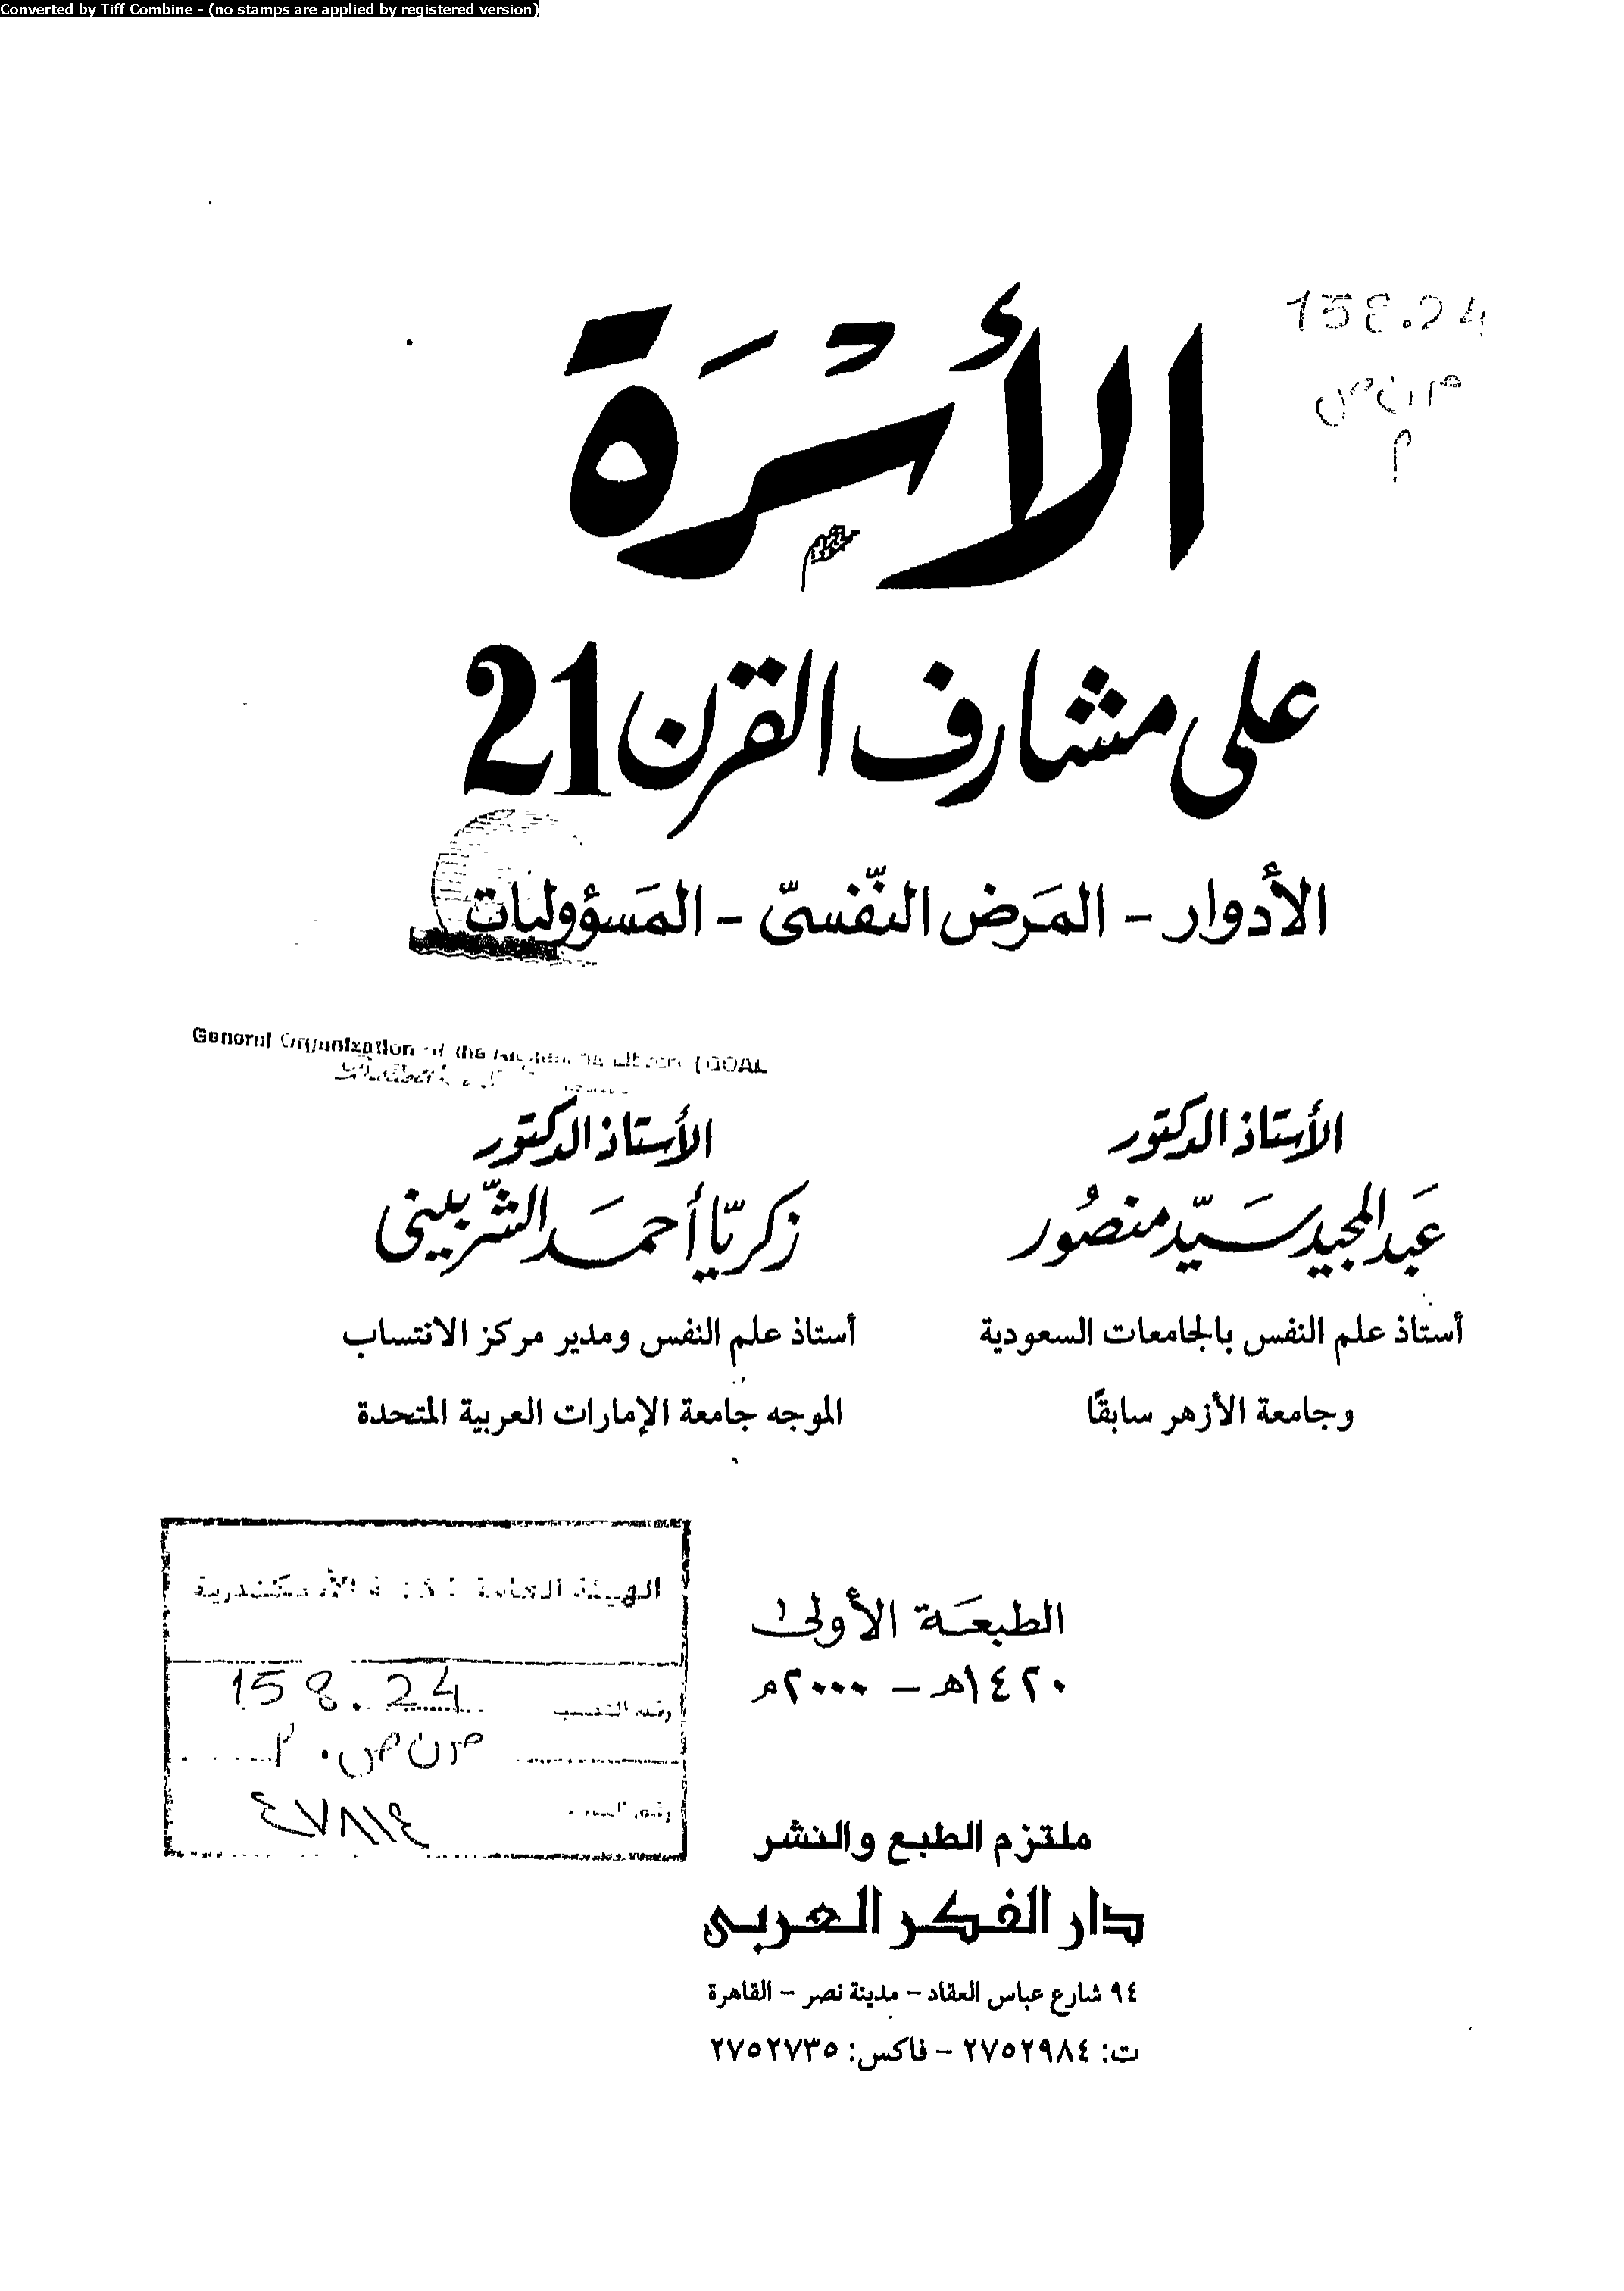 Converted by Tiff Combine - (no stamps are applied by registered version)
158.24
م ن ص
م
الأُسْرَة
على مشارف القرن 21
الأدوار - المَرض النّفسىّ - المَسؤوليات
General Organization of the
الأستاذ الدكتور
عَبد المجيد سَيّد منصُور
أستاذ علم النفس بالجامعات السعودية
وجامعة الأزهر سابقًا
الأستاذ الدكتور
زكريّا أحمَد الشّربينى
أستاذ علم النفس ومدير مركز الانتساب
الموجه جامعة الإمارات العربية المتحدة
الطبعَة الأولى
١٤٢٠هـ - ٢٠٠٠م
الهيئة العامة الأسكندرية
158.24
٤٧٨١٤
ملتزم الطبع والنشر
دار الفكر العربى
٩٤ شارع عباس العقاد - مدينة نصر - القاهرة
ت: ٢٧٥٢٩٨٤ - فاكس: ٢٧٥٢٧٣٥